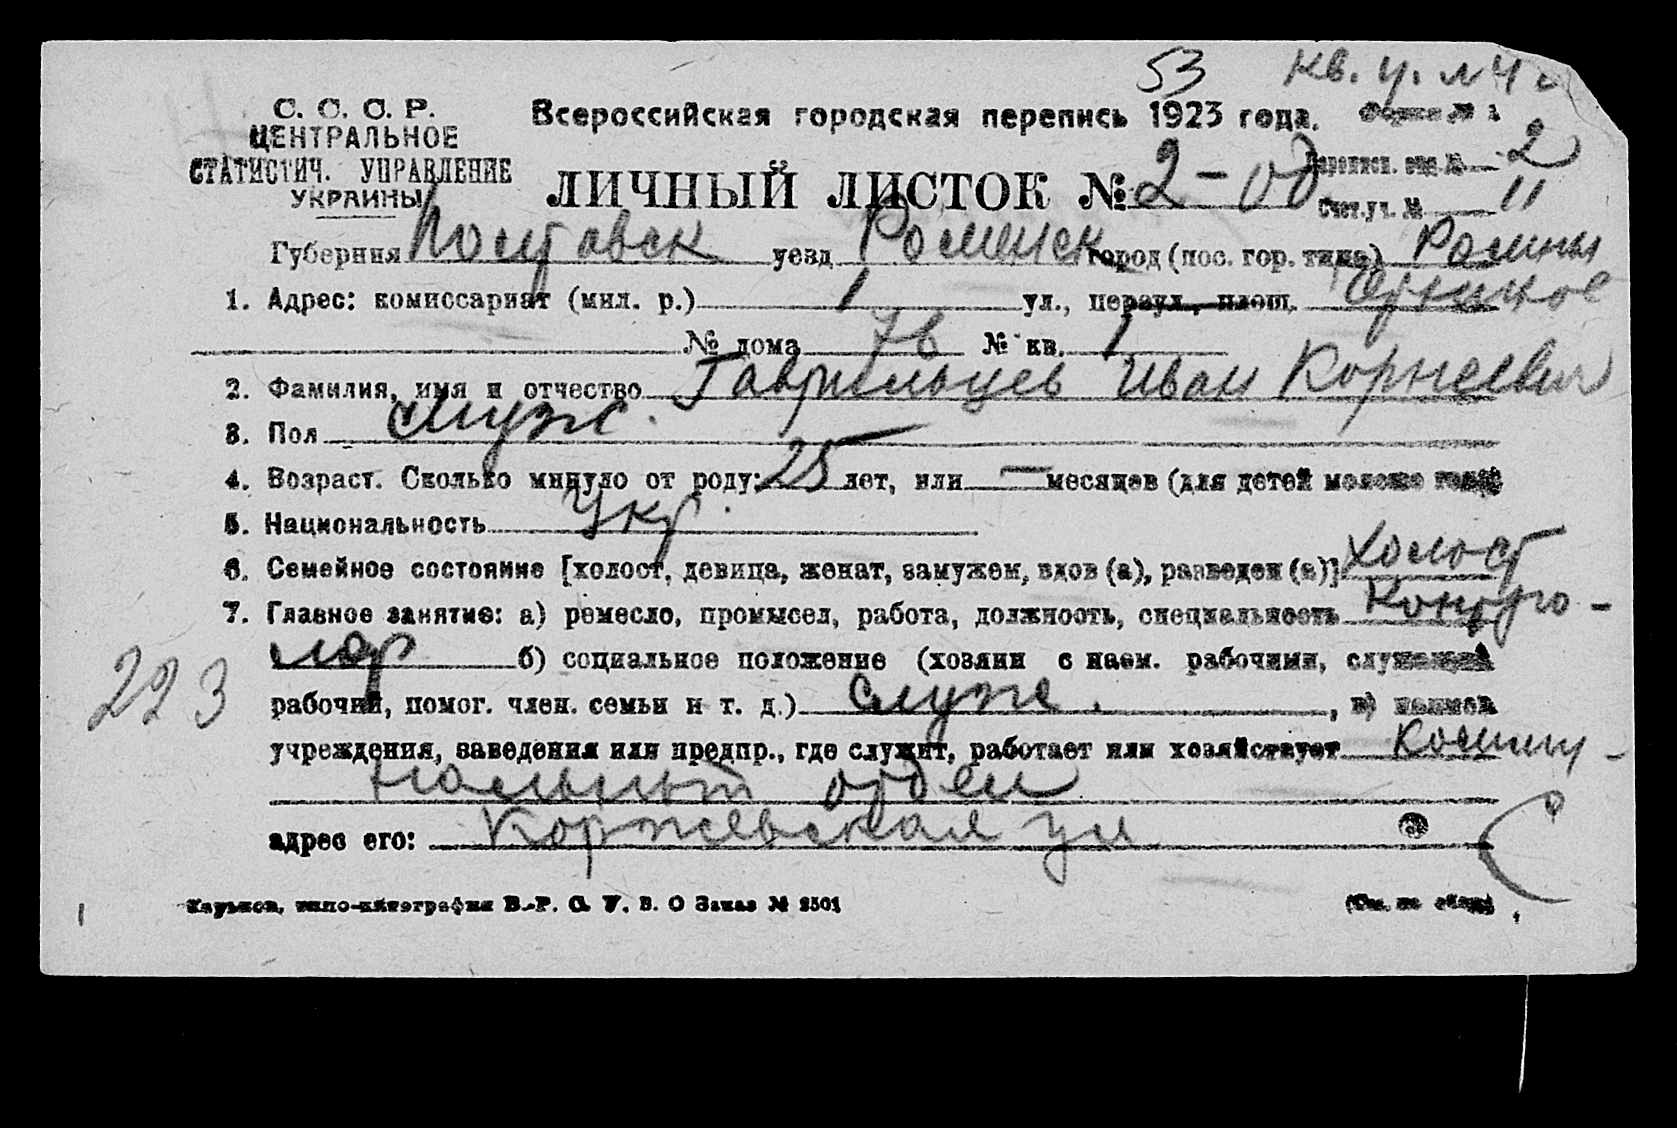 53 кв. у. №4
С. С. С. Р.
ЦЕНТРАЛЬНОЕ
СТАТИСТИЧ. УПРАВЛЕНИЕ
УКРАИНЫ
Всероссийская городская перепись 1923 года.
Форма № 1
ЛИЧНЫЙ ЛИСТОК № 2-
Переписн. отд. № 2
Счет. уч. № 11
Губерния Полтавск уезд Роменск город (пос. гор. типа) Ромны
1. Адрес: комиссариат (мил. р.) 1 ул., переул., площ.
№ дома 7в № кв. 1
2. Фамилия, имя и отчество Гаврильцев Иван Корнеевич
3. Пол муж.
4. Возраст. Сколько минуло от роду: 25 лет, или — месяцев (для детей моложе года)
5. Национальность Укр.
6. Семейное состояние [холост, девица, женат, замужем, вдов (а), разведен (а)] холост
7. Главное занятие: а) ремесло, промысел, работа, должность, специальность Контро-
лер б) социальное положение (хозяин с наем. рабочими, служащий
рабочий, помог. член. семьи и т. д.) служ. , в) наимен.
учреждения, заведения или предпр., где служит, работает или хозяйствует Комму-
нальный отдел
адрес его: Коржевская ул
223
Харьков, типо-литография В.-Р. С. У. В. О Заказ № 2501
(См. на обор.)